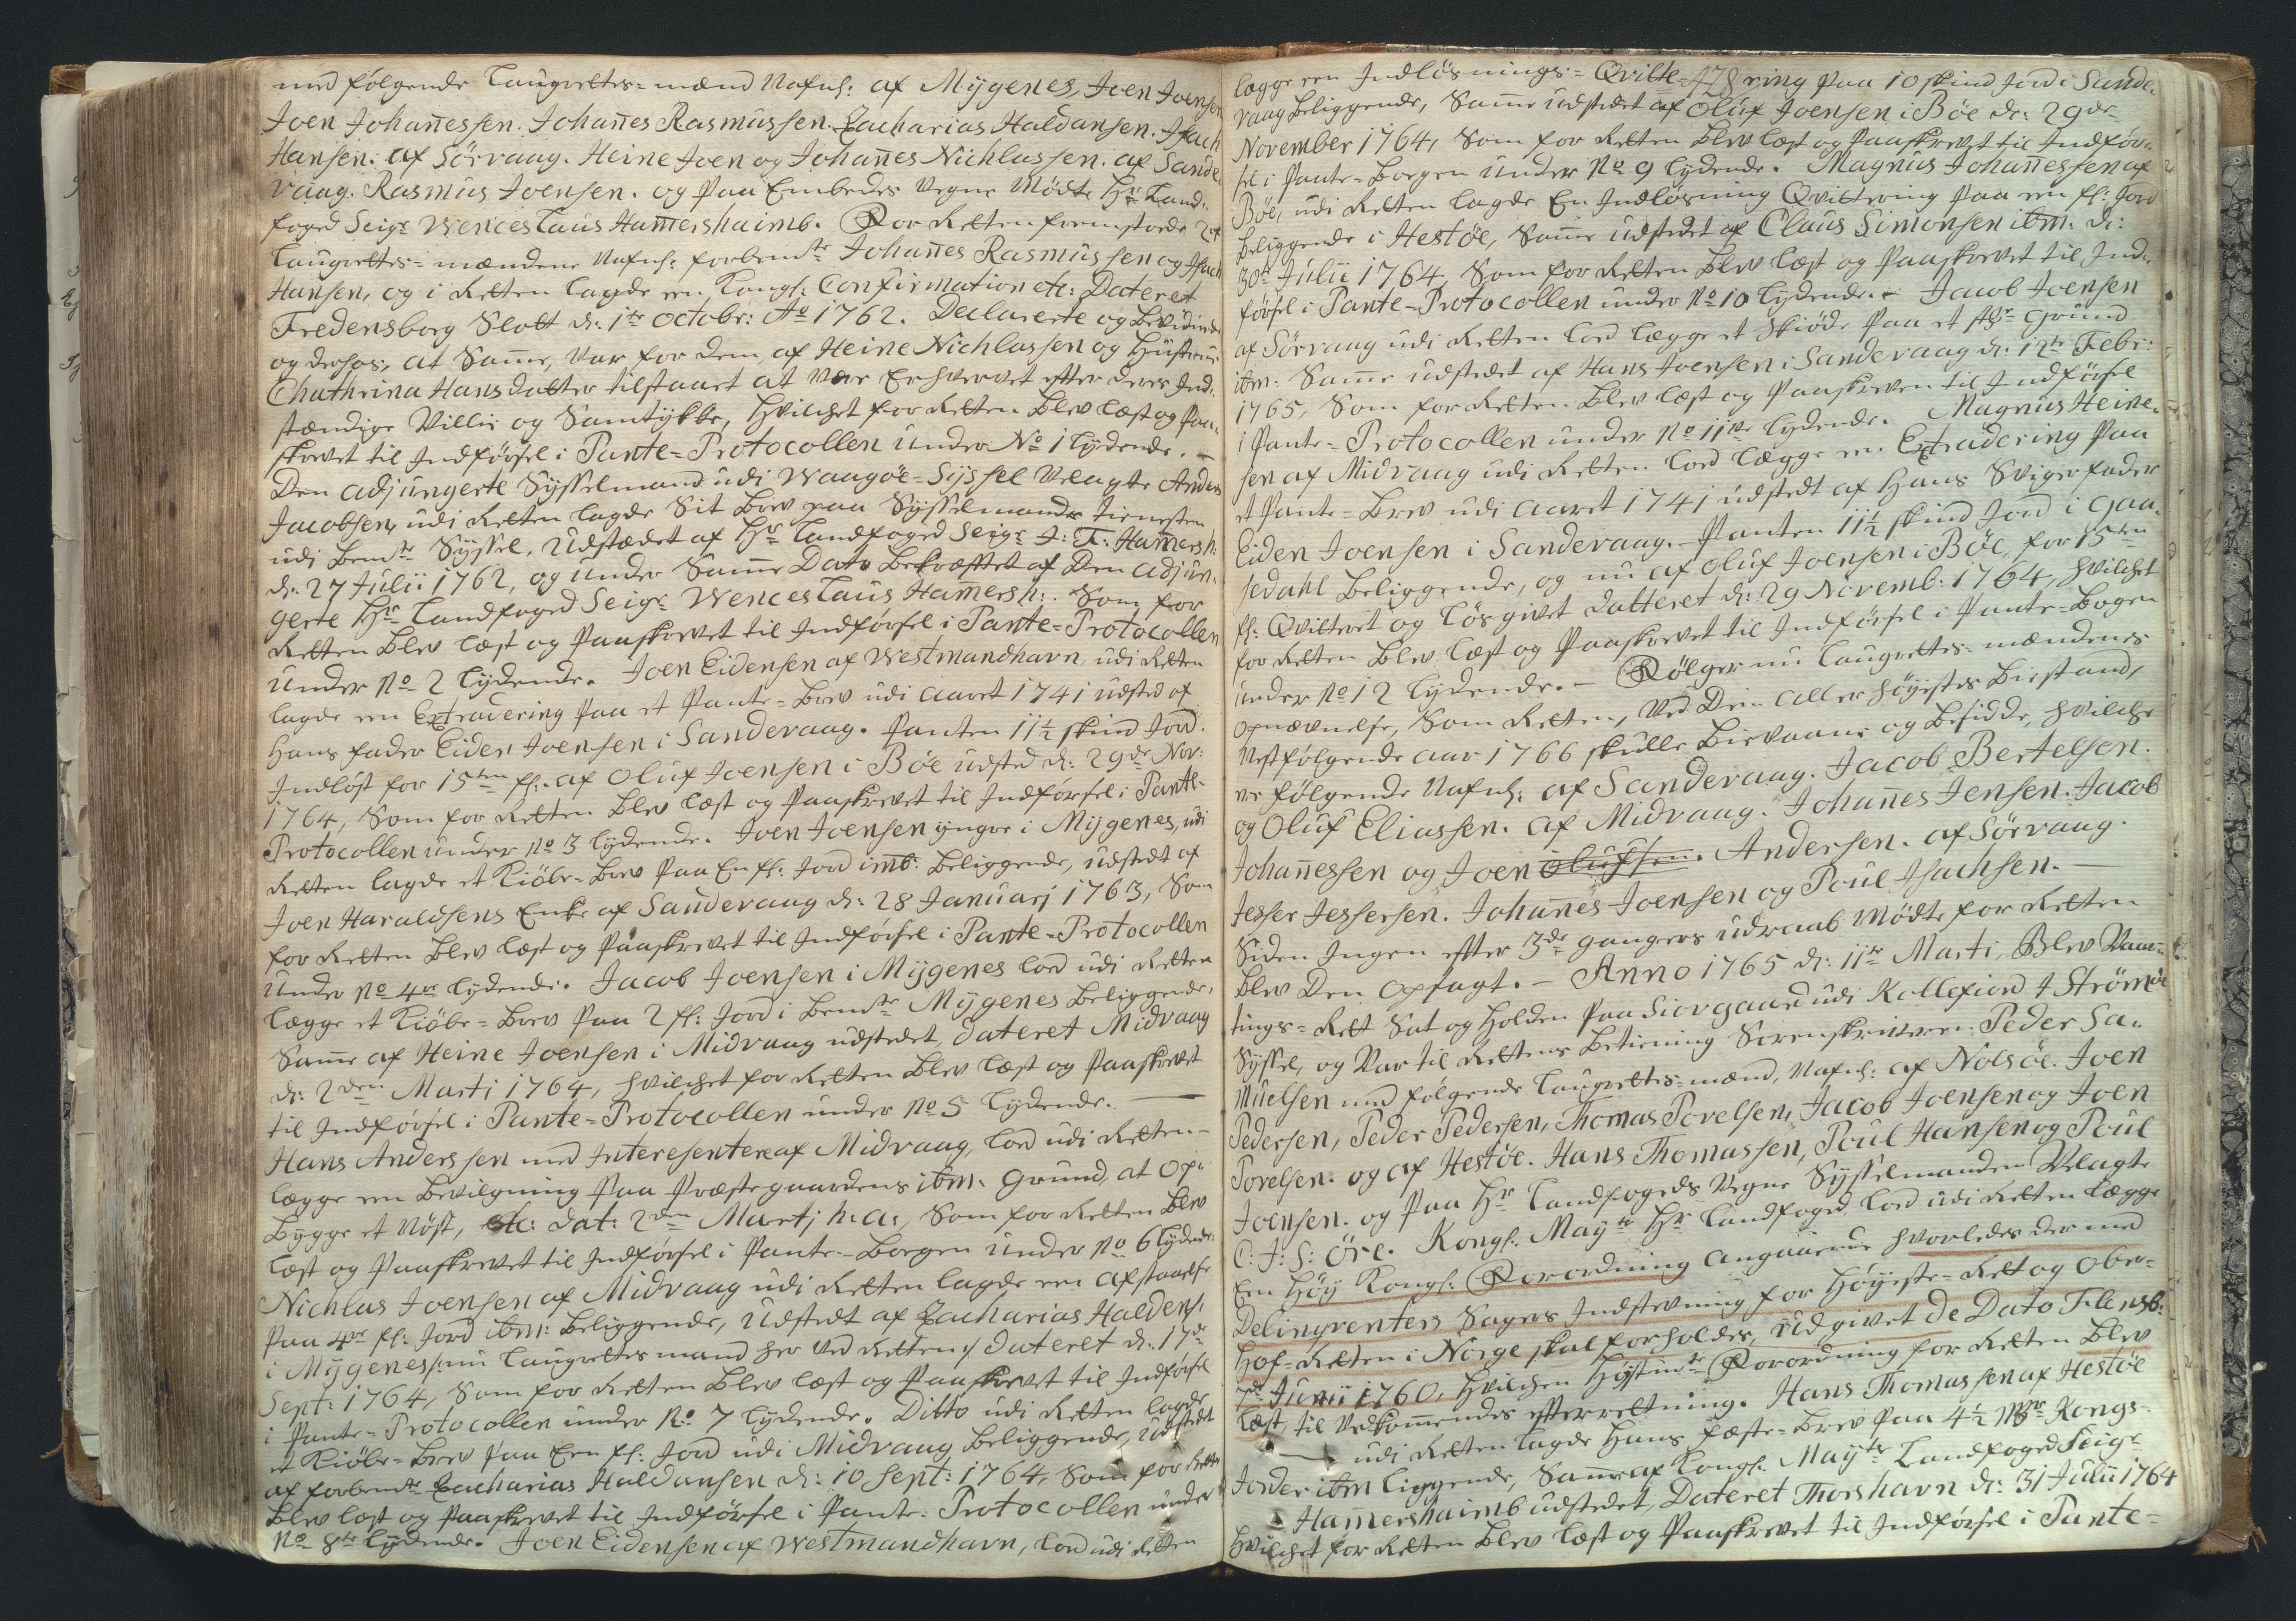 med følgende Laugrettes-mænd Nafnl: af Mÿgenes, Joen Joensen
Joen Johan̄essen. Johan̄es Rasmussen. Zacharias Haldansen. Isach
Hansen: af Sörvaag. Heine Joen og Johan̄es Nichlassen. af Sande-
vaag. Rasmus Joensen. og paa Embedes Vegne Mødte Hr Land-
foged Seigr Wenceslaus Ham̄ershaimb. For Retten fremstoede 2de
Laugrettes-mændene Nafnl: forbemte Johan̄es Rasmussen og Isach
Hansen, og i Retten lagde en Kongl: Confirmation etc: Dateret
Fredensborg Slott d: 1te Octobr: Ao 1762. Declarerte og bevidnede
og derhos, at Sam̄e, var for dem af Heine Nichlassen og Hustrue
Chathrina Hansdatter tilstaaet at vær Erhvervet efter deres Ind-
stændige Villie og Samtykke, hvilchet for Retten blev læst og Paa-
skrevet til Indførsel i Pante-Protocollen under No 1 lydende. -
Den adjungerte Sysselmand udi Waagöe-Syssel Velagte Anders
Jacobsen, udi Retten lagde Sit brev paa Sysselmands tienesten
udi bemte Syssel, Udstædet af Hr Landfoged Seigr J: F: Ham̄ersh:
d: 27 Julii 1762, og under Sam̄e Dato bekræftet af Den adjun-
gerte Hr Landfoged Seigr Wenceslaus Ham̄ersh: Som for
Retten blev læst og Paaskrevet til Indførsel i Pante-Protocollen
under No 2 lydende. Joen Eidensen af Westmandhavn, udi Retten
lagde en Extradering paa et Pante-brev udi aaret 1741 udsted af
Hans fader Eiden Joensen i Sandevaag. Panten 11½ skind Jord.
Indløst for 15ten fl: af Oluf Joensen i Böe udsted d: 29de Nov:
1764, Som for Retten blev læst og Paaskrevet til Indførsel i Pante-
Protocollen under No 3 lydende. Joen Joensen yngre i Mÿgenes, udi
Retten lagde et Kiöbe-brev paa En fl: Jord imb: beliggende, udstedt af
Joen Haraldsens Enke af Sandevaag d: 28 Januarj 1763, Som
for Retten blev læst og Paaskrevet til Indførsel i Pante-Protocollen
under No 4re lydende. Jacob Joensen i Mÿgenes lod udi Retten
lægge et Kiöbe-brev paa 2 fl: Jord i bemte Mÿgenes beliggende,
Sam̄e af Heine Joensen i Midvaag udstedet, dateret Midvaag
d: 2den Marti 1764, hvilchet for Retten blev læst og Paaskrevet
til Indførsel i Pante-Protocollen under No 5 lydende. -
Hans Anderssen med Interesentere af Midvaag, lod udi Retten-
lægge en bevilgning paa Præstegaardens ibm: Grund, at Op-
bygge et Nöst, etc: dat: 2den Martj h: a:, Som for Retten blev
læst og Paaskrevet til Indførsel i Pante-bogen under No 6 lydend:
Nichlas Joensen af Midvaag udi Retten lagde en afstaaelse
paa 4re fl: Jord ibm: beliggende, udstedt af Zacharias Haldens:
i Mÿgenes /: nu Laugrettes mand her ved Retten :/ dateret d: 17de
Sept: 1764, Som for Retten blev læst og Paaskrevet til Indførsel
i Pante-Protocollen under No 7 lydende. Ditto udi Retten lagde
et Kiöbe-brev paa Een fl: Jord udi Midvaag beliggende, udstedet
af forbemte Zacharias Haldansen d: 10 Sept: 1764, Som for Retten
blev læst og Paaskrevet til Indførsel i Pante-Protocollen under
No 8te lydende. Joen Eidensen af Westmandhavn, lod udi Retten
178
lægge een Indlösnings-Qvittering paa 10 skind Jord i Sande-
vaag beliggende, Sam̄e udstedet af Oluf Joensen i Böe d: 29de
November 1764, Som for Retten blev læst og Paaskrevet til Indför-
sel i Pante-bogen under No 9 lydende. Magnus Johan̄essen af
Böe, udi Retten lagde En Indlösning Qvittering paa een fl: Jord
beliggende i Hestöe, Sam̄e udstedet af Claus Simonsen ibm: d:
30te Julii 1764, Som for Retten blev læst og Paaskrevet til Ind-
førsel i Pante-Protocollen under No 10 lydende. - Jacob Joensen
af Sörvaag udi Retten lod lægge et Skiöde paa et styk grund
ibm: Sam̄e udstedet af Hans Joensen i Sandevaag d: 12te Febr:
1765, Som for Retten blev læst og Paaskreven til Indførsel
i Pante-Protocollen under No 11te lydende. Magnus Heine-
sen af Midvaag udi Retten lod lægge en Extradering paa
et Pante-brev udi aaret 1741 udstedt af Hans Sviger fader
Eiden Joensen i Sandevaag. Panten 11½ skind Jord i Gaa-
sedahl beliggende, og nu af Oluf Joensen i Böe, for 15ten
fl: Qvitteret og Lösgivet datteret d: 29 Novemb: 1764, hvilchet
for Retten blev læst og Paaskrevet til Indførsel i Pante-bogen
under No 12 lydende. - Fölger nu Laugrettes-mændenes
opnævnelse, Som Retten, ved Dein allerhöjestes bistand,
Nestfølgende aar 1766 skulle bievaane og besidde, hvilche
ere følgende Nafnl: af Sandevaag. Jacob Bertelsen.
og Oluf Eliassen. af Midvaag. Johan̄es Jensen. Jacob
Johan̄essen og Joen Olufsen. Andersen. af Sörvaag.
Jesser Jessersen. Johan̄es Joensen og Poul Isachsen. -
Siden Ingen efter 3de ganger udraab Mödte for Retten
blev Den opsagt. - Anno 1765 d: 11te Marti, blev Vaar-
tings-Rett Sat og Holden paa Siovgaard udi Kollefiord i Strömöe
Syssel, og Var til Rettens betiening Sorenskriveren Peder Sa-
muelsen med følgende Laugrettes-mænd, Nafnl: af Nolsöe. Joen
Pedersen, Peder Pedersen, Thomas Povelsen, Jacob Joensen og Joen
Povelsen: og af Hestöe. Hans Thomassen, Poul Hansen og Poul
Joensen. og paa Hr Landfogeds Vegne Sysselmanden Velagte
C: J: S: Öre. Kongl: Mayts Hr Landfoged, lod udi Retten lægge
En Höy Kongl: Forordning angaaende hvorledes der med
Delinqventers Sagers Indstevning for Höyeste-Rett og Ober-
hof-Retten i Norge skal forholdes, udgivet de Dato Flensb:
7de Junii 1760, hvilchen höystmte Forordning for Retten blev
læst, til Vedkom̄endes efterretning. Hans Thomassen af Hestöe
udi Retten lagde hans fæste-brev paa 4½ Mr Kongs-
Jorder ibm liggende, Sam̄e af Kongl: Mayts Landfoged Seigr
Ham̄ershaimb udstedet, Dateret Thorshavn d: 31 Julii 1764
hvilchet for Retten blev læst og Paaskrevet til Indførsel i Pante-